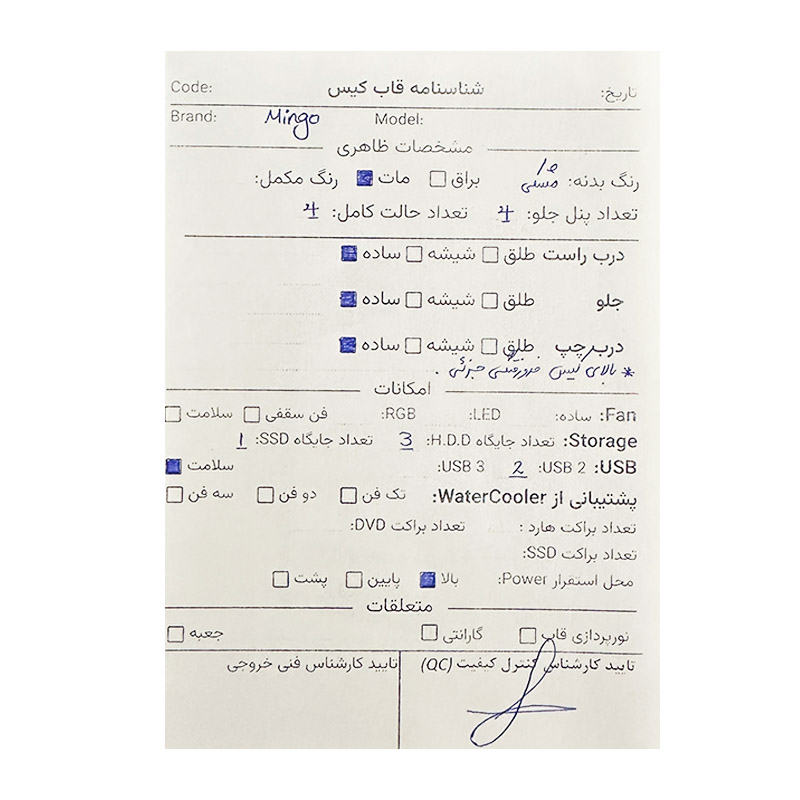 تاریخ: شناسنامه قاب کیس Code:
Brand: Mingo Model:
مشخصات ظاهری
رنگ بدنه: مشکی براق مات رنگ مکمل:
تعداد پنل جلو: 4 تعداد حالت کامل: 4
درب راست طلق شیشه ساده
جلو طلق شیشه ساده
درب چپ طلق شیشه ساده
* بالای کیس فرورفتگی جزئی .
امکانات
Fan: ساده: LED: RGB: فن سقفی سلامت
Storage: تعداد جایگاه H.D.D: 3 تعداد جایگاه SSD: 1
USB: USB 2: 2 USB 3: سلامت
پشتیبانی از WaterCooler: تک فن دو فن سه فن
تعداد براکت هارد : تعداد براکت DVD:
تعداد براکت SSD:
محل استقرار Power: بالا پایین پشت
متعلقات
نورپردازی قاب گارانتی جعبه
تایید کارشناس کنترل کیفیت (QC) تایید کارشناس فنی خروجی